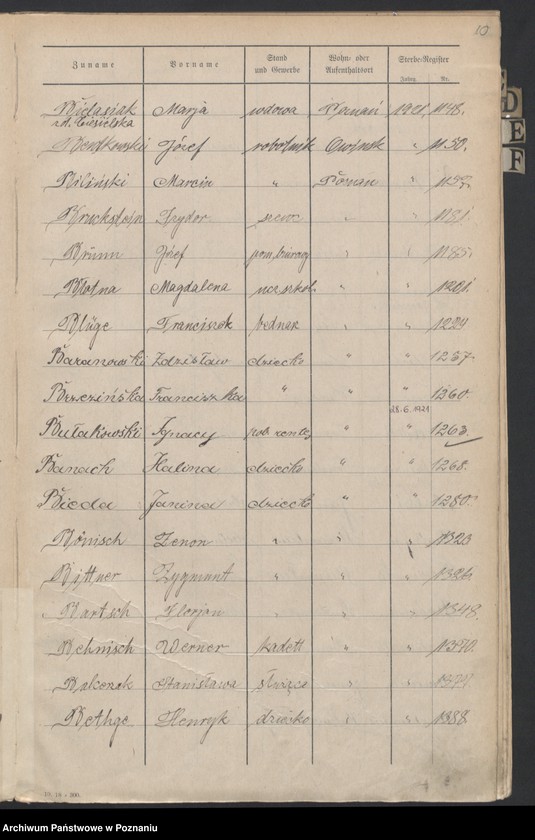 10
Zuname Vorname Stand und Gewerbe Wohn- oder Aufenthaltsort Sterbe-Register
Jahrg. Nr.
Bielasiak Marja wdowa Poznań 1921 1148.
z d. Ciesielska
Józef robotnik Owinsk " 1150.
Biliński Marcin " Poznań "
Izydor szewc " " 1181
Brünn Józef pom. biurowy " " 1185.
Błotna Magdalena ucz. szkol. " " 1201.
Klüge Franciszek bednarz " " 1224
Baranowski Zdzisław dziecko " " 1237.
Brzezińska Franciszka " " " 1260.
28.6.1921
Bułakowski Ignacy " " 1263.
Banach Halina dziecko " " 1268.
Bieda Janina dziecko " " 1280.
Bönisch Zenon " " " 1323
Bittner Zygmunt " " " 1326
Bartsch Florjan " " " 1348.
Behnisch Werner kadett " " 1370.
Balcerak Stanisława służąca " "
Bethge Henryk dziecko " " 1388
D
E
F
Archiwum Państwowe w Poznaniu